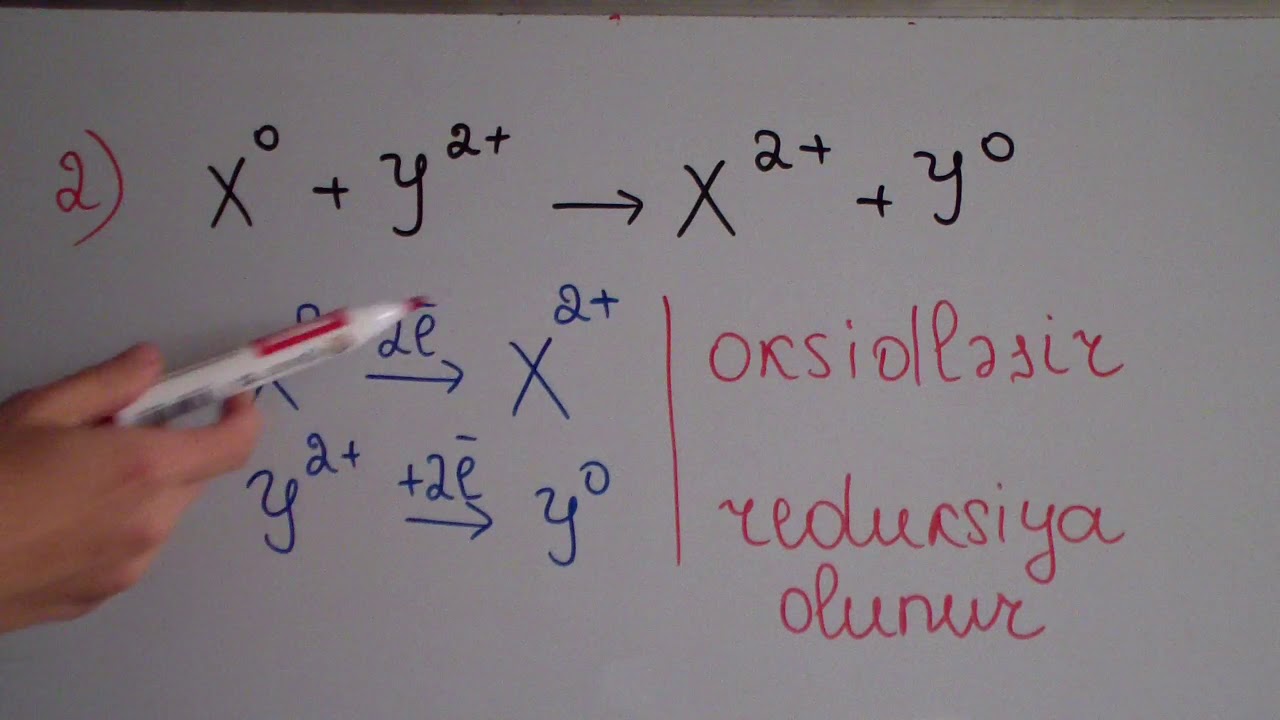 2) X⁰ + y²⁺ → X²⁺ + y⁰
2ē → X²⁺ | oksidləşir
y²⁺ +2ē → y⁰ | reduksiya
olunur